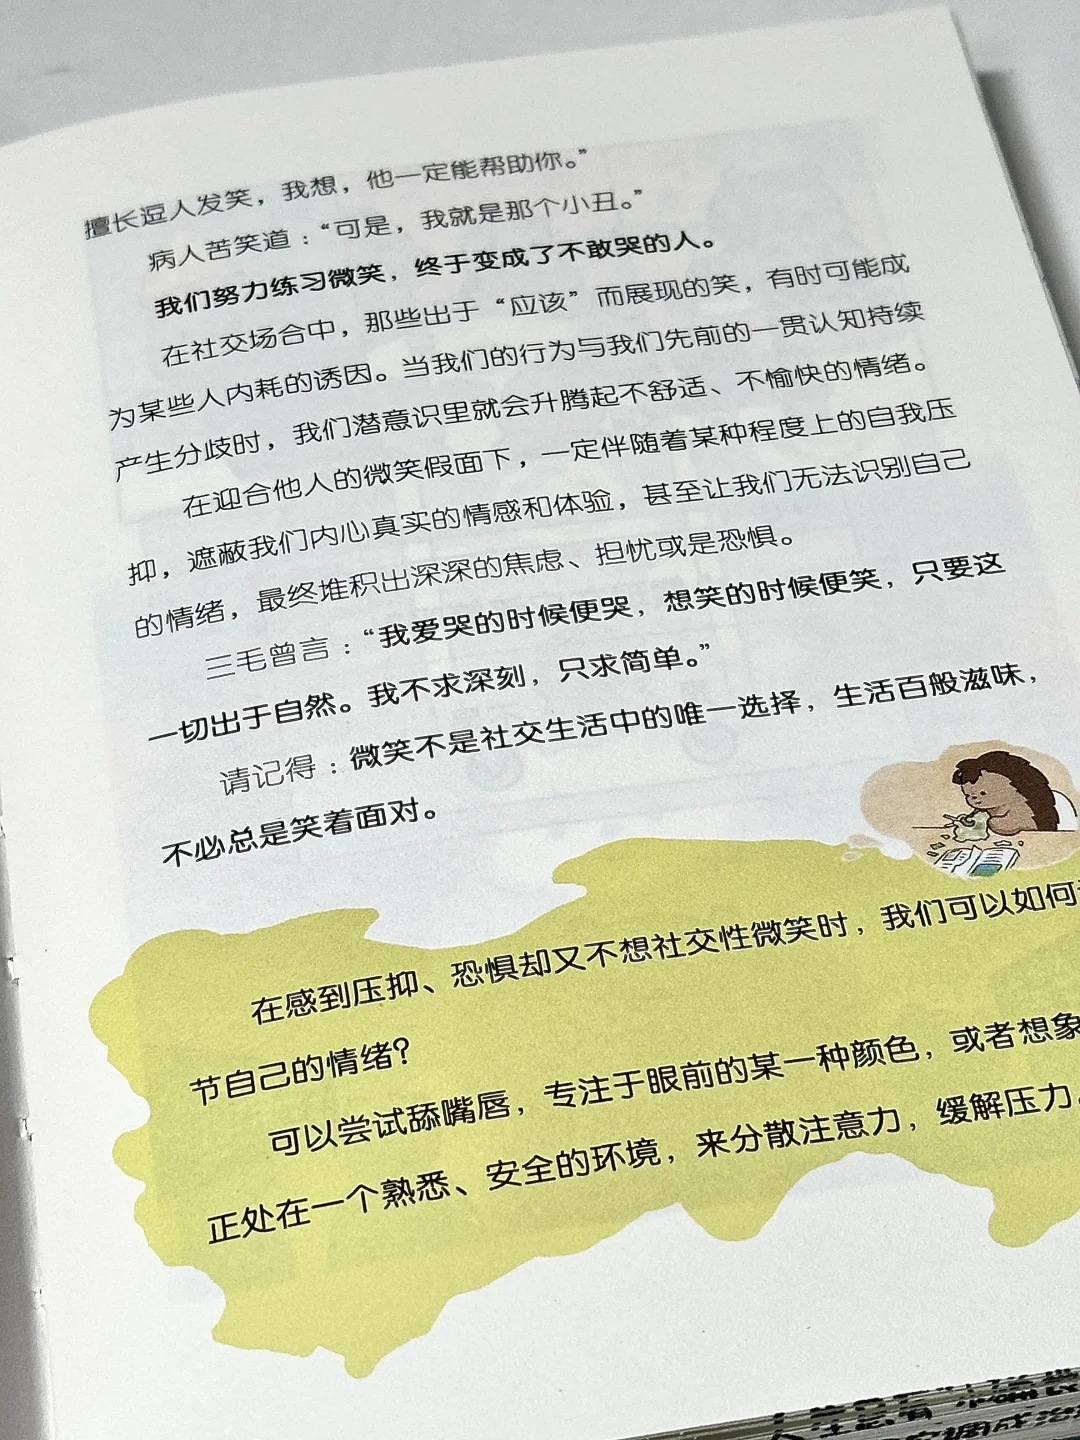 擅长逗人发笑，我想，他一定能帮助你。”
病人苦笑道：“可是，我就是那个小丑。”
我们努力练习微笑，终于变成了不敢哭的人。
在社交场合中，那些出于“应该”而展现的笑，有时可能成
为某些人内耗的诱因。当我们的行为与我们先前的一贯认知持续
产生分歧时，我们潜意识里就会升腾起不舒适、不愉快的情绪。
在迎合他人的微笑假面下，一定伴随着某种程度上的自我压
抑，遮蔽我们内心真实的情感和体验，甚至让我们无法识别自己
的情绪，最终堆积出深深的焦虑、担忧或是恐惧。
三毛曾言：“我爱哭的时候便哭，想笑的时候便笑，只要这
一切出于自然。我不求深刻，只求简单。”
请记得：微笑不是社交生活中的唯一选择，生活百般滋味，
不必总是笑着面对。
在感到压抑、恐惧却又不想社交性微笑时，我们可以如何
节自己的情绪？
可以尝试舔嘴唇，专注于眼前的某一种颜色，或者想象
正处在一个熟悉、安全的环境，来分散注意力，缓解压力。